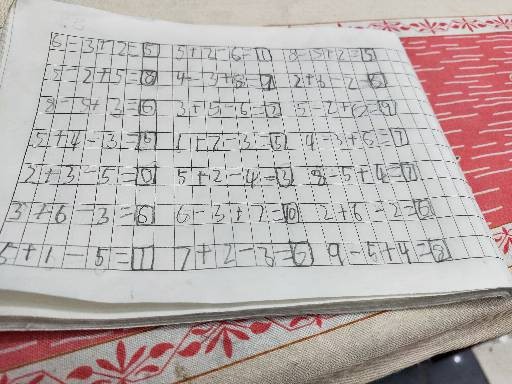 6-3+2=5 5+2-6=1 8-5+2=5
5-2+5=8 4-3+6=7 2+6-2=6
8-5+3=6 3+5-6=2 5-2+6=9
5+4-3=6 1+7-3=5 4-3+6=7
3+3-5=1 5+2-4=3 8-5+4=7
3+6-3=6 6-3+7=10 2+6-2=6
5+1-5=1 7+2-3=6 9-5+4=8